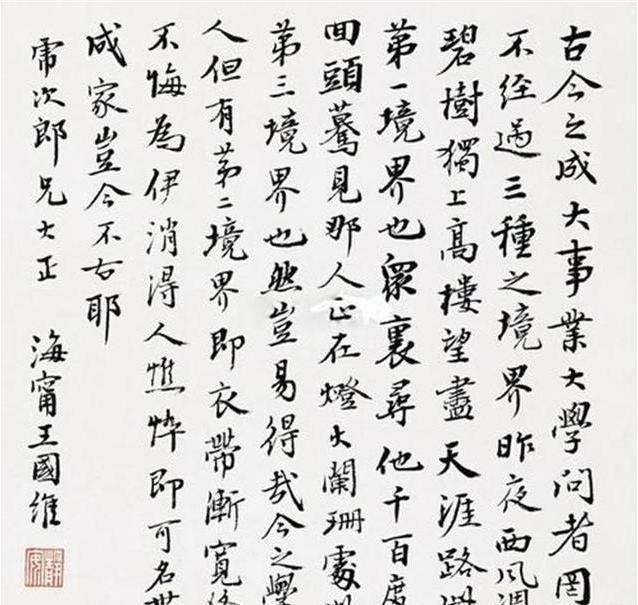 古今之成大事業大學問者罔
不經過三種之境界昨夜西風凋
碧樹獨上高樓望盡天涯路
第一境界也眾裏尋他千百度
回頭驀見那人正在燈火闌珊處
第三境界也然豈易得哉今之學
人但有第二境界即衣帶漸寬
不悔為伊消得人憔悴即可名
成家豈今不古耶
次郎兄大正
海甯王國維
靜安